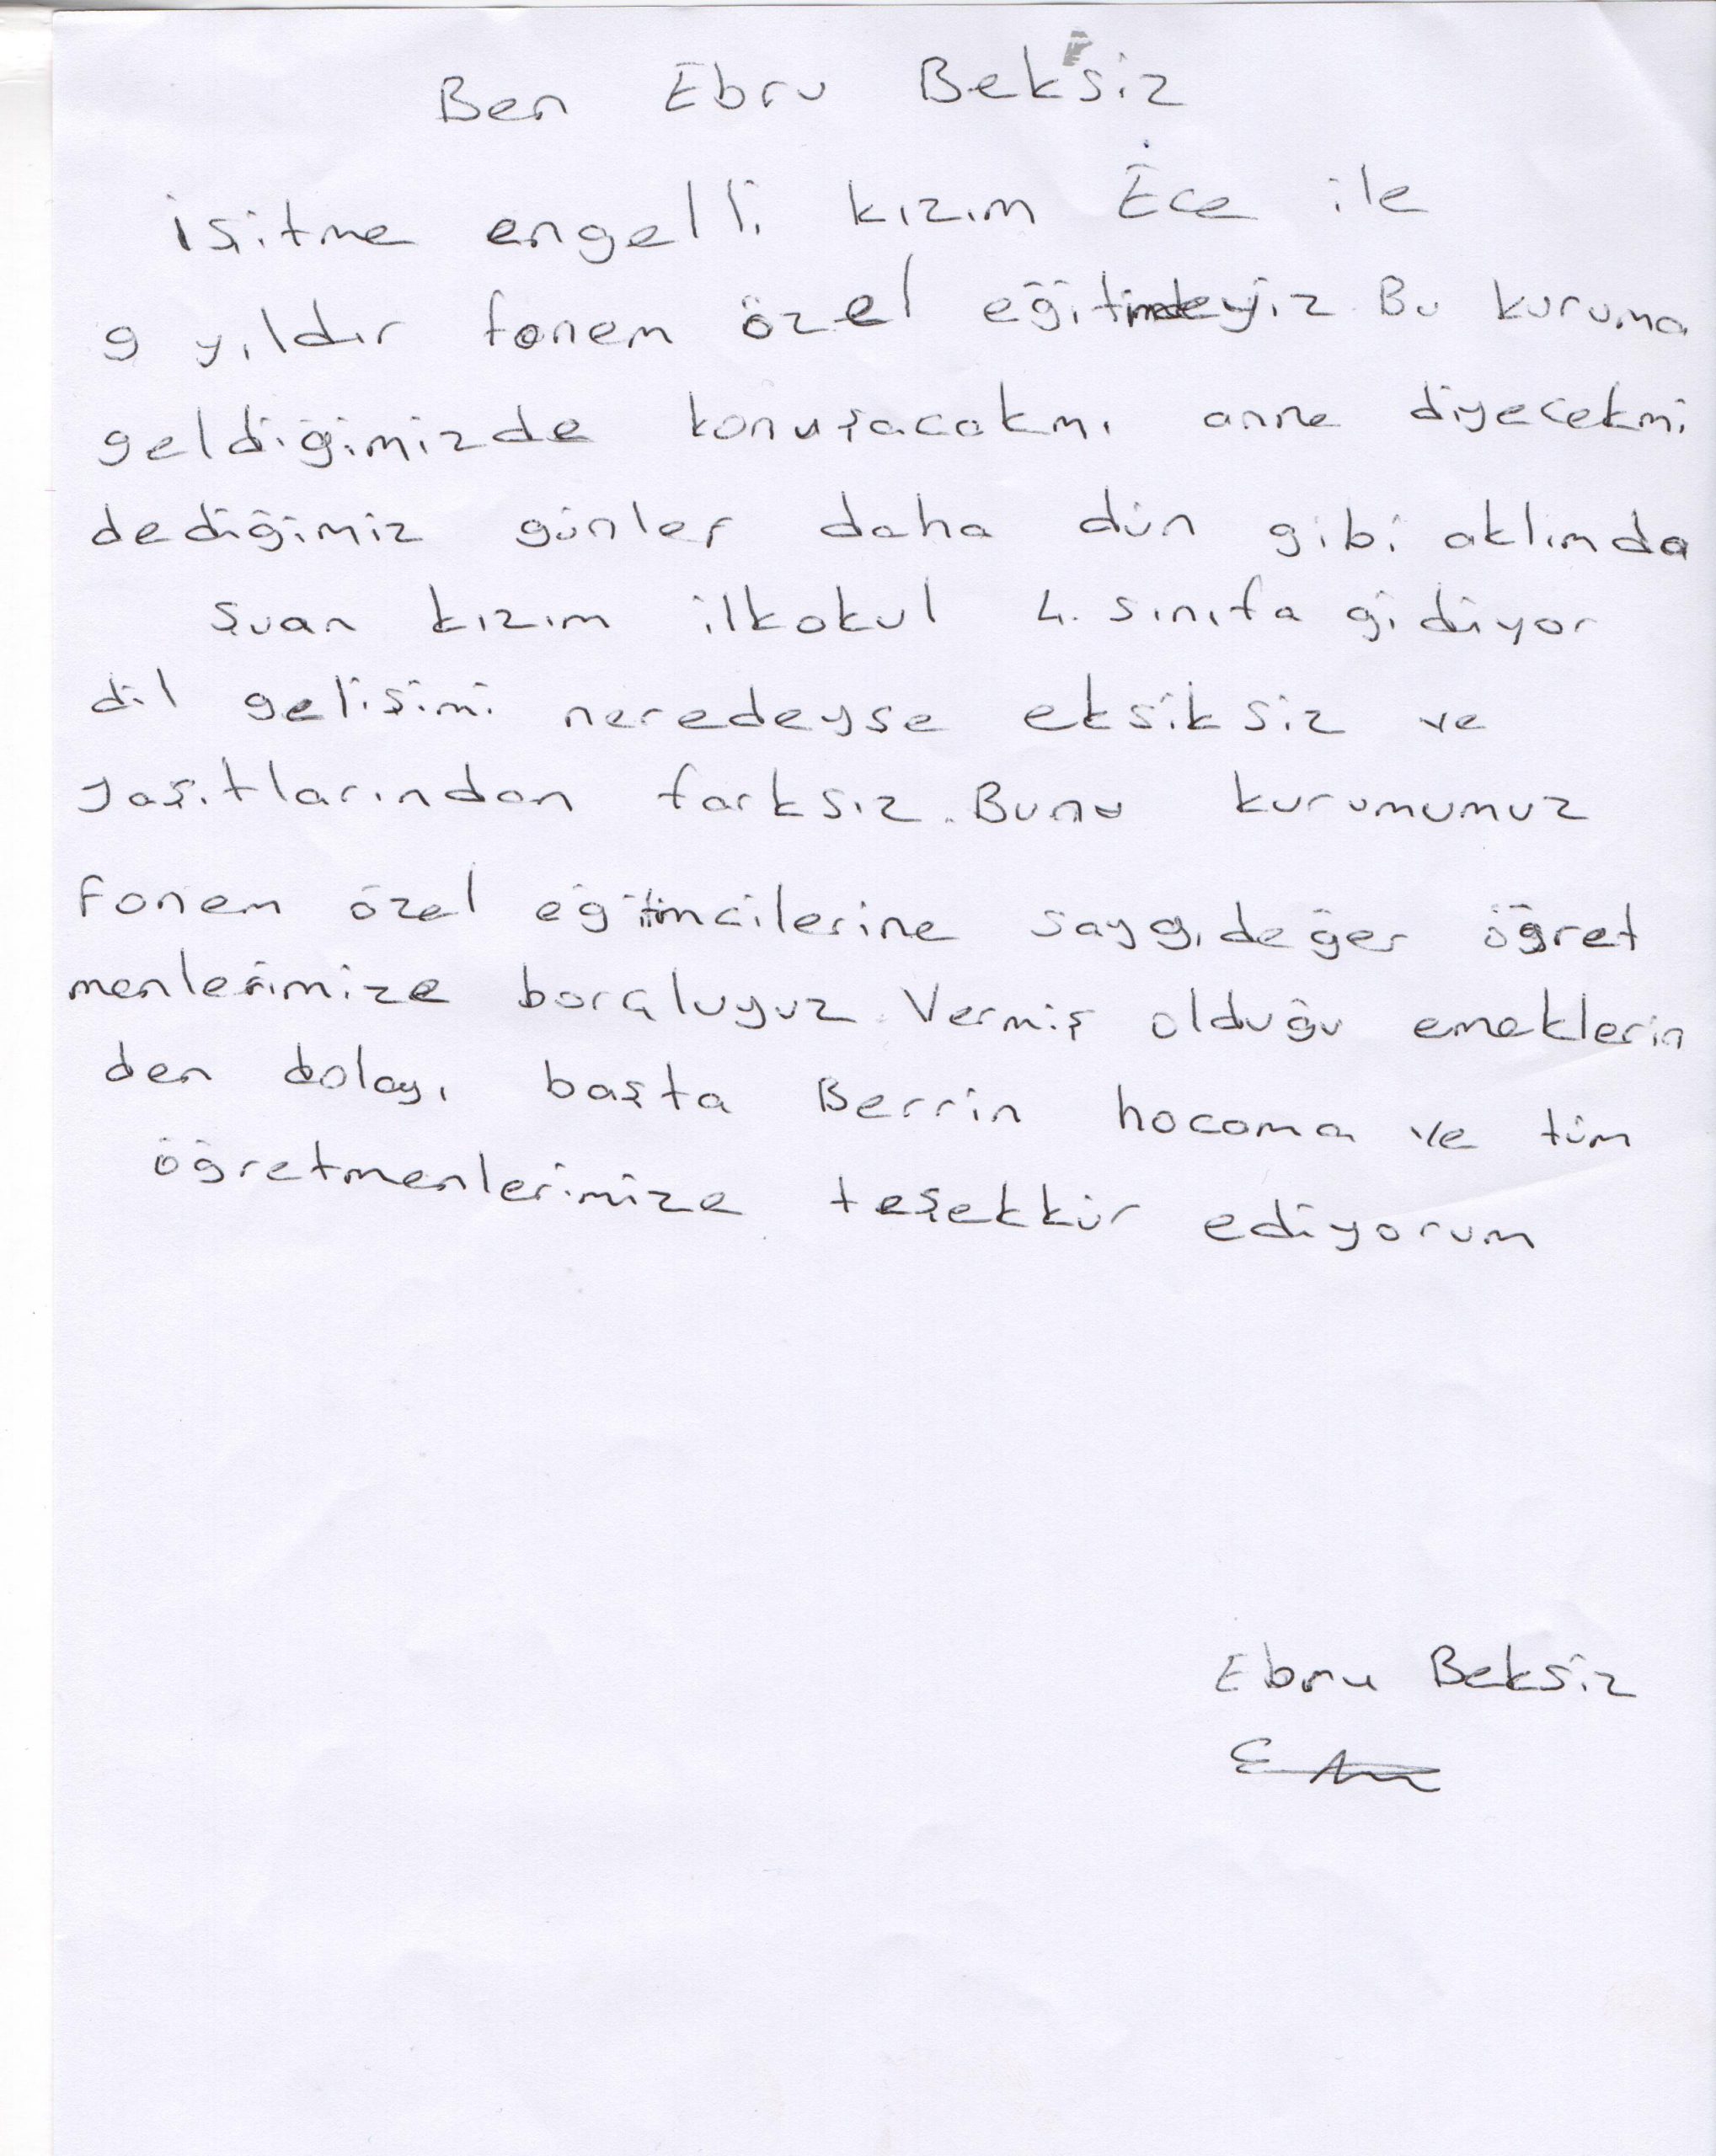 Ben Ebru Beksiz
işitme engelli kızım Ece ile
9 yıldır fonem özel eğitimdeyiz. Bu kuruma
geldiğimizde konuşacakmı anne diyecekmi
dediğimiz günler daha dün gibi aklımda
şuan kızım ilkokul 4. sınıfa gidiyor
dil gelişimi neredeyse eksiksiz ve
yaşıtlarından farksız. Bunu kurumumuz
Fonem özel eğitimcilerine saygıdeğer öğret
menlerimize borçluyuz. Vermiş olduğu emeklerin
den dolayı başta Berrin hocama ve tüm
öğretmenlerimize teşekkür ediyorum
Ebru Beksiz